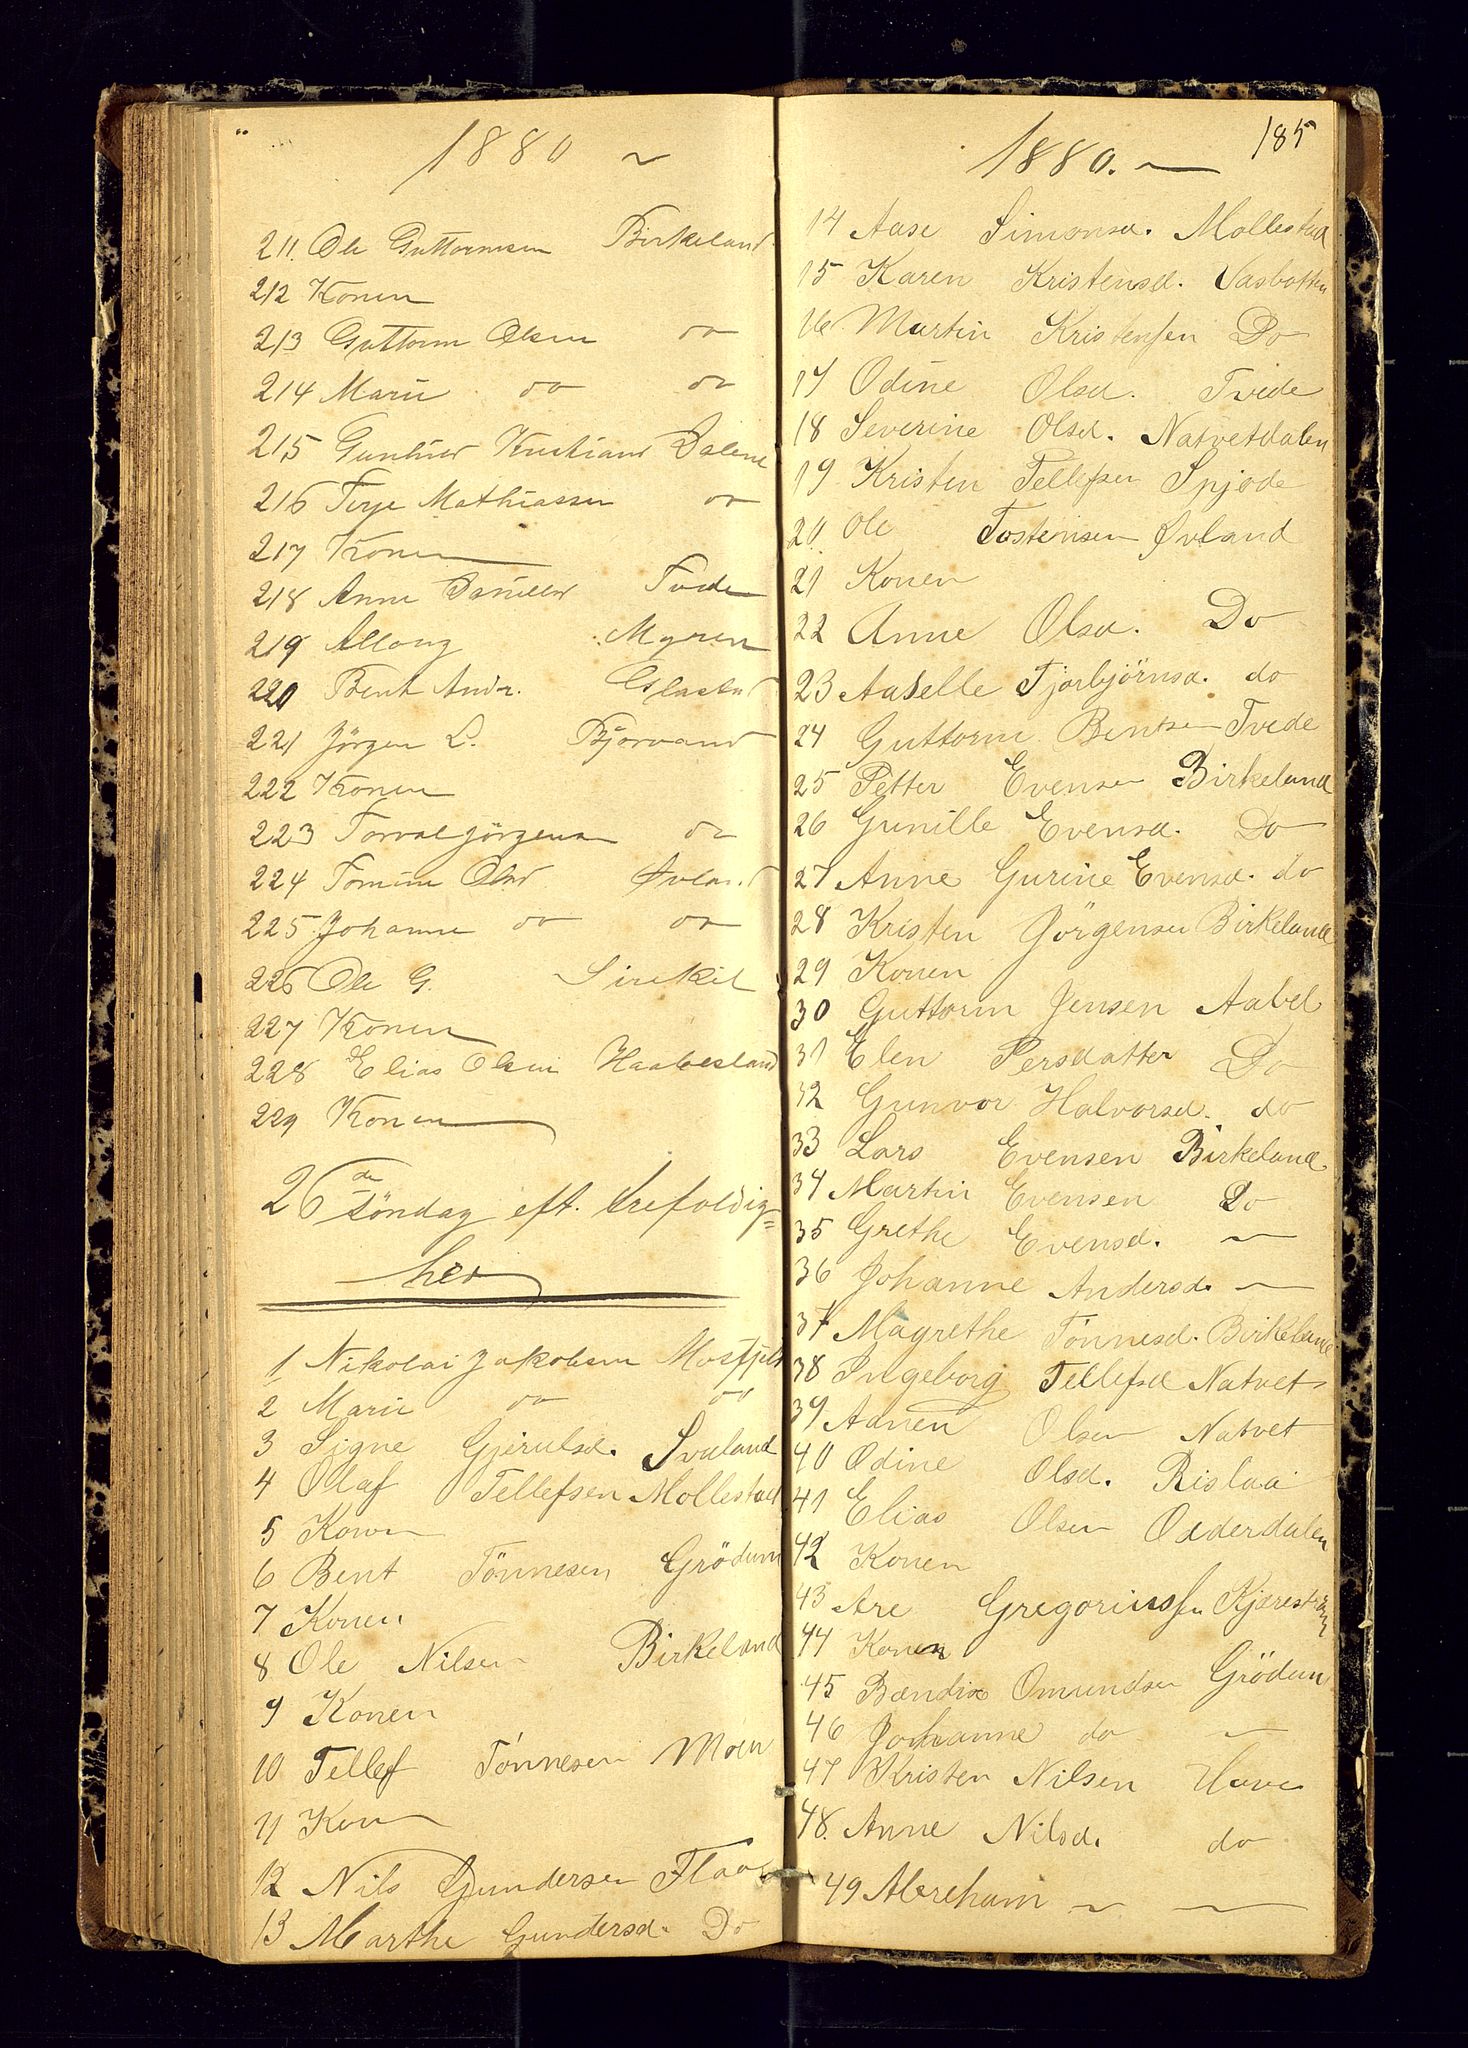 1880 ~
211. Ole Guttormsen Birkeland
212 Konen
213 Guttorm Olsen do
214 Marie do do
215 Gunhild Kristiansd Dalene
216 Terje Mathiassen do
217 Konen
218 Anne Danielsd Tvede
219 Allong Myren
220 Bent Andr.
221 Jörgen L. Bjorvand
222 Konen
223 Torval Jörgens do
224 Tomine Olsd Øvland
225 Johanne do do
226 Ole G. Sirekil
227 Konen
228 Elias Olsen Haabesland
229 Konen
26de Söndag eft. Trefoldig=
hed
1 Nikolai Jakobsen Mosfjeld
2 Marie do do
3 Signe Gjerulsd. Svaland
4 Olaf Tellefsen Mollestad
5 Konen
6 Bent Tönnesen Grödum
7 Konen
8 Ole Nilsen Birkeland
9 Konen
10 Tellef Tönnesen Moen
11 Konen
12 Nils Gundersen Flaa
13 Marthe Gundersd. Do
185
1880. —
14 Aase Simonsd. Mollestad
15 Karen Kristensd. Vasbotten
16 Martin Kristensen Do
17 Odine Olsd. Tvede
18 Severine Olsd. Natvetdalen
19 Kristen Tellefsen Spjode
20. Ole Tostensen Øvland
21 Konen
22 Anne Olsd. Do
23 Aaselle Tjorbjörnsd. do
24 Guttorm Bentsen Tvede
25 Petter Evensen Birkeland
26 Gunille Evensd. Do
27 Anne Gurine Evensd. do
28 Kristen Jörgensen Birkeland
29 Konen
30 Guttorm Jensen Aabel
31 Elen Persdatter Do
32 Gunvor Halvorsd. do
33 Lars Evensen Birkeland
34 Martin Evensen Do
35 Grethe Evensd. —
36 Johanne Andersd. —
37 Magrethe Tönnesd. Birkeland
38 Ingeborg Tellefsd Natvet
39 Adnen Olsen Natvet
40 Odine Olsd. Rislaa
41 Elias Olsen Odderdalen
42 Konen
43 Are Gregoriussen Kjærestrøm
44 Konen
45 Bendix Omundsen Grödum
46 Johanne do —
47 Kristen Nilsen Uave
48. Anne Nilsd. do
49 Abreham ~ —